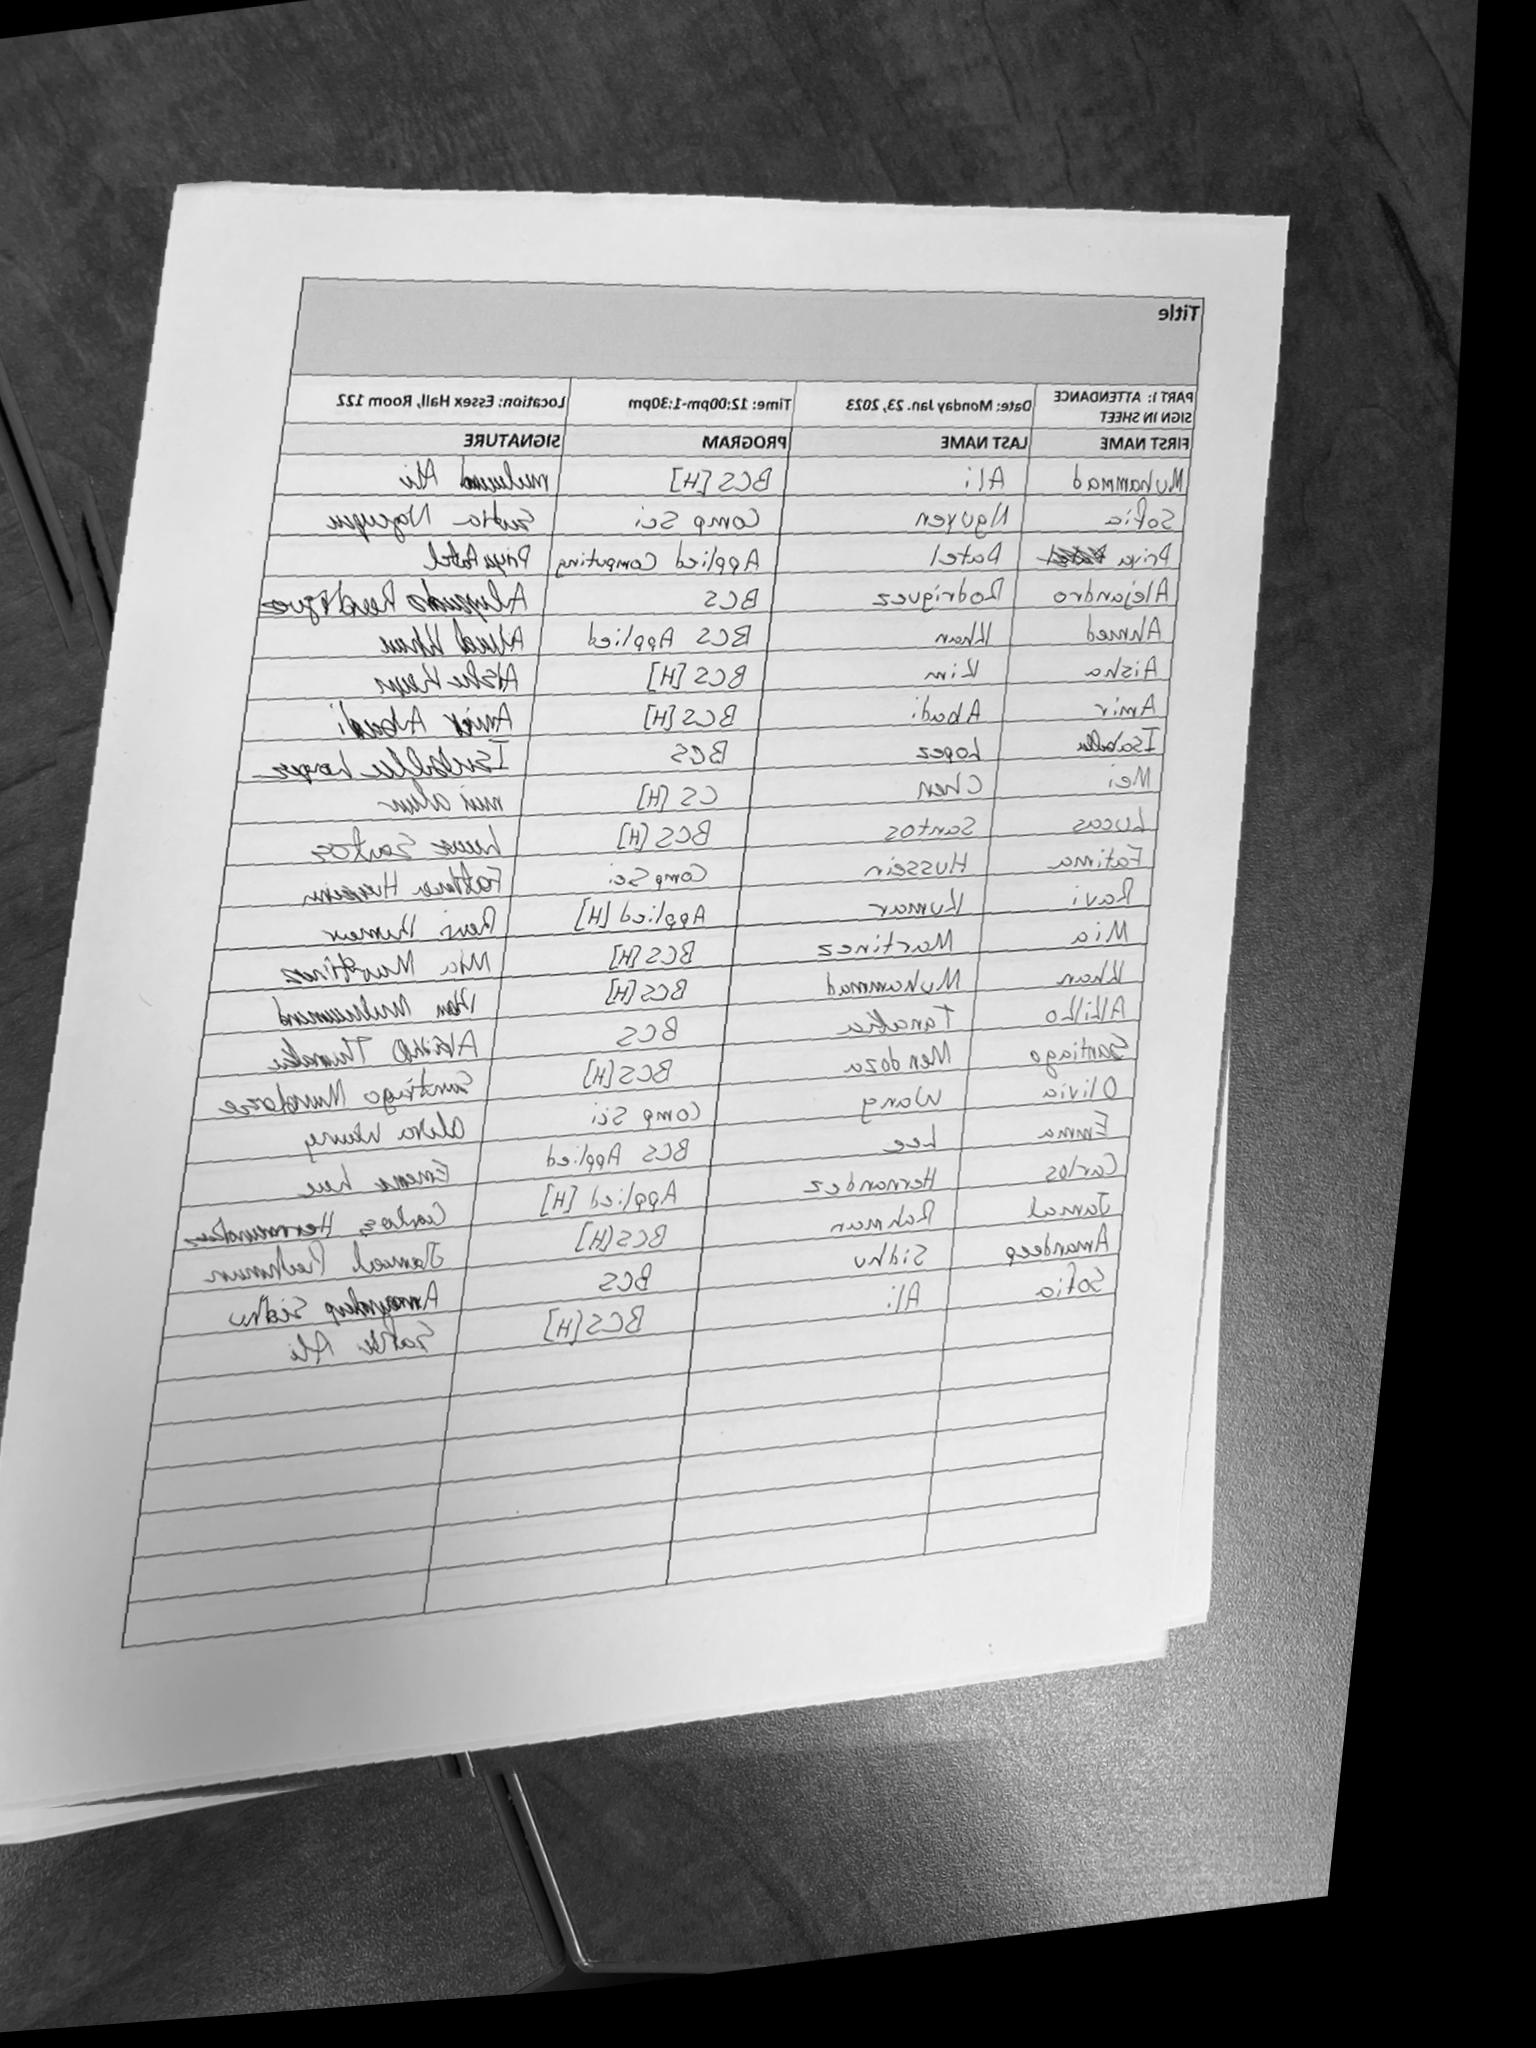 Title
PART I: ATTENDANCE SIGN IN SHEET Date: Monday Jan. 23, 2023 Time: 12:00pm-1:30pm Location: Essex Hall, Room 122
FIRST NAME LAST NAME PROGRAM SIGNATURE
Muhammad Ali BCS [H] Ali
Sofia Nguyen Comp Sci Sofia Nguyen
Priya Patel Applied Computing Priya Patel
Alejandro Rodriguez BCS Alejandro Rodriguez
Ahmed Khan BCS Applied Ahmed Khan
Aisha Kim BCS [H]
Amir Abadi BCS [H] Amir Abadi
Isabella Lopez BCS Isabella Lopez
Mei Chen CS [H]
Lucas Santos BCS [H] Lucas Santos
Fatima Hussein Comp Sci Fatima Hussein
Ravi Kumar Applied [H] Ravi Kumar
Mia Martinez BCS [H] Mia Martinez
Khan Muhammad BCS [H] Muhammad
Tanaka BCS
Santiago Mendoza BCS [H] Santiago Mendoza
Olivia Wang Comp Sci Olivia Wang
Emma Lee BCS Applied Emma Lee
Carlos Hernandez Applied [H] Carlos Hernandez
Jamal Rahman BCS [H] Jamal Rahman
Amandeep Sidhu BCS Amandeep Sidhu
Sofia Ali BCS [H] Sofia Ali